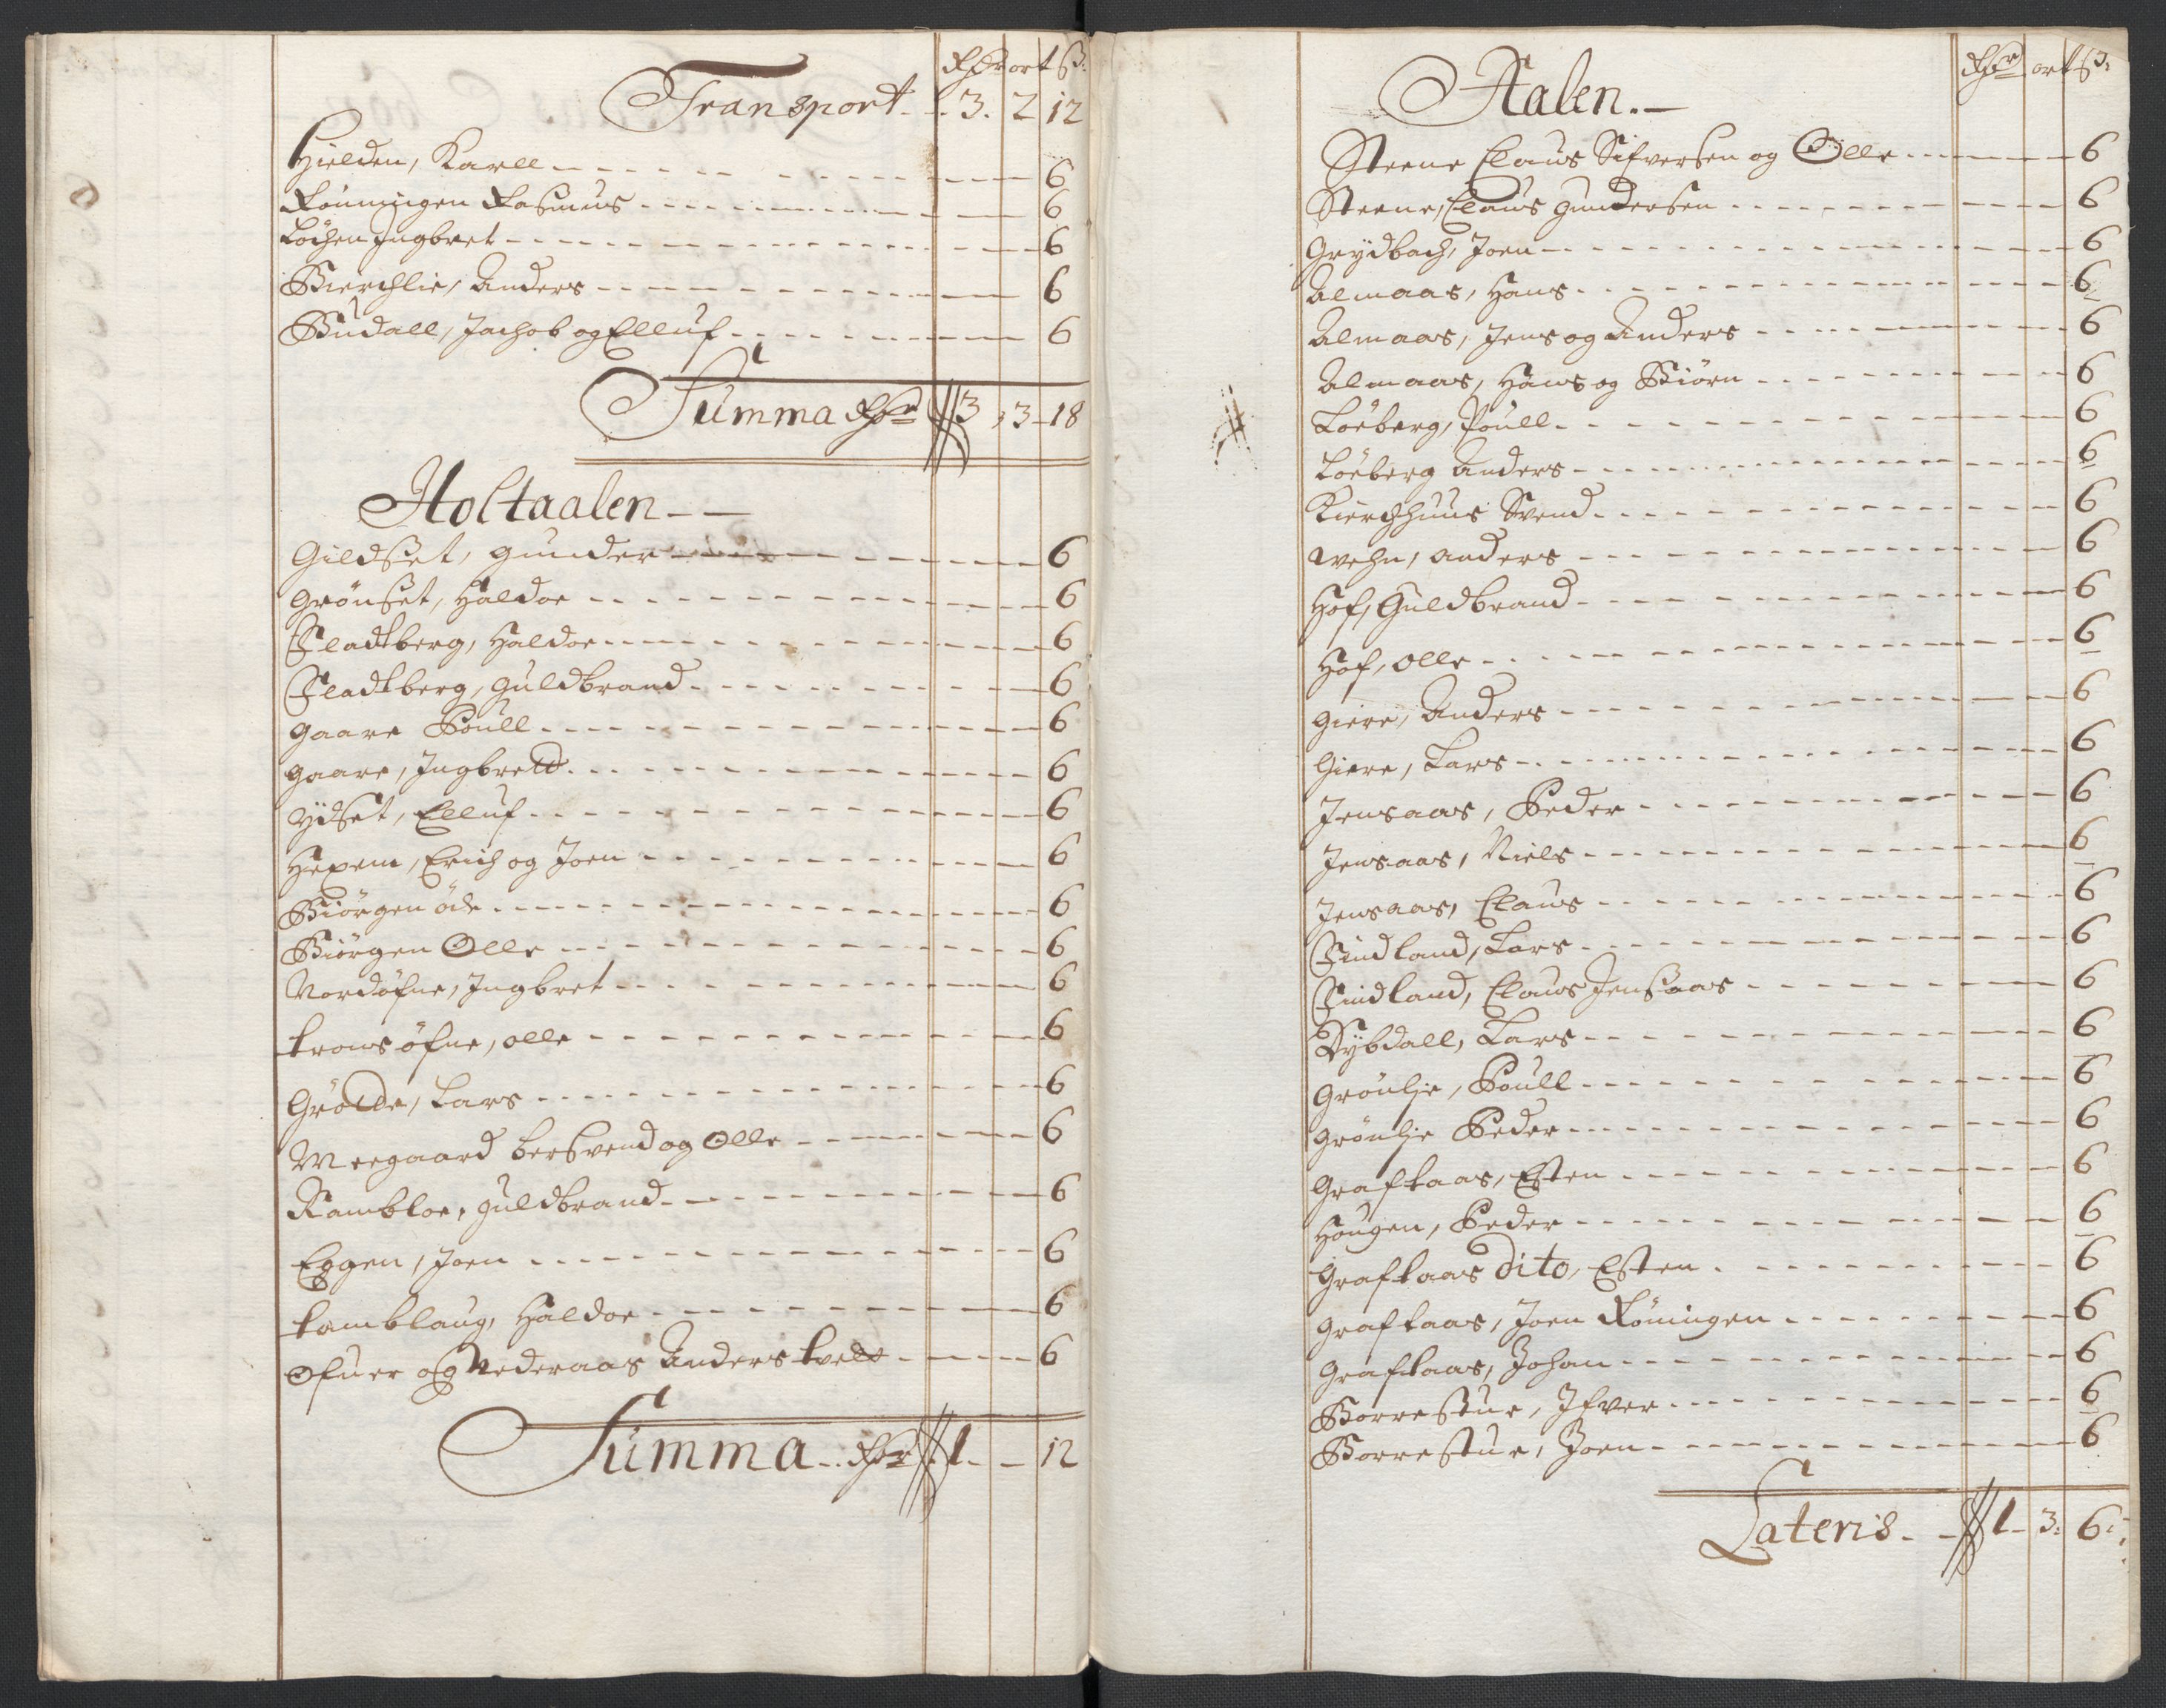 Rdr ort ß:
Transport. . 3. 2 12
Hielden, Karell 6
Rönningen Rasmus 6
Löchen Ingbret 6
Bierchlie, Anders 6
Budall, Jachob og Elluf 6
Summa Rdr 3 , 3 - 18
Holtaalen
Gildset, gunder 6
Grönset, Haldor 6
Fladtberg, Haldor 6
Fladtberg, guldbrand 6
gaare Poull 6
gaare, Ingbreth 6
Ydset, Elluf 6
Hexem, Erich og Joen 6
Biörgen öde 6
Biörgen Olle 6
Nordöfne, Ingbret 6
tronsöfne, olle 6
Grötte, Lars 6
Meegaard bersvend og Olle 6
Rambloe, guldbrand 6
Eggen, Joen 6
tamblaug, Haldor 6
Ofuer og Nederaas Anders 6
Summa Rdr 1 - - 12
Rdr ort ß:
Aalen.
Steene Claus Sifversen og Olle 6
Steene, Claus gundersen 6
Grydbach, Joen 6
Almaas, Hans 6
Almaas, Jens og Anders 6
Almaas, Hans og Biörn 6
Löeberg, Poull 6
Löeberg Anders 6
Kierchhuus Svend 6
wehn, anders 6
Hof, Guldbrand 6
Hof, olle 6
giere, Anders 6
Giere, Lars 6
Jensaas, Peder 6
Jensaas, Niels 6
Jensaas, Claus 6
Findland, Lars 6
Findland, Claus Jensaas 6
Dybdall, Lars 6
Grönlje, Poull 6
Grönlje Peder 6
Graftaas, Esten 6
Hougen, Peder 6
Graftaas dito, Esten 6
Graftaas, Joen Röningen 6
Graftaas, Johan 6
Borrestue, Ifver 6
Borrestue, Joen 6
Lateris 1 - 3: 6: